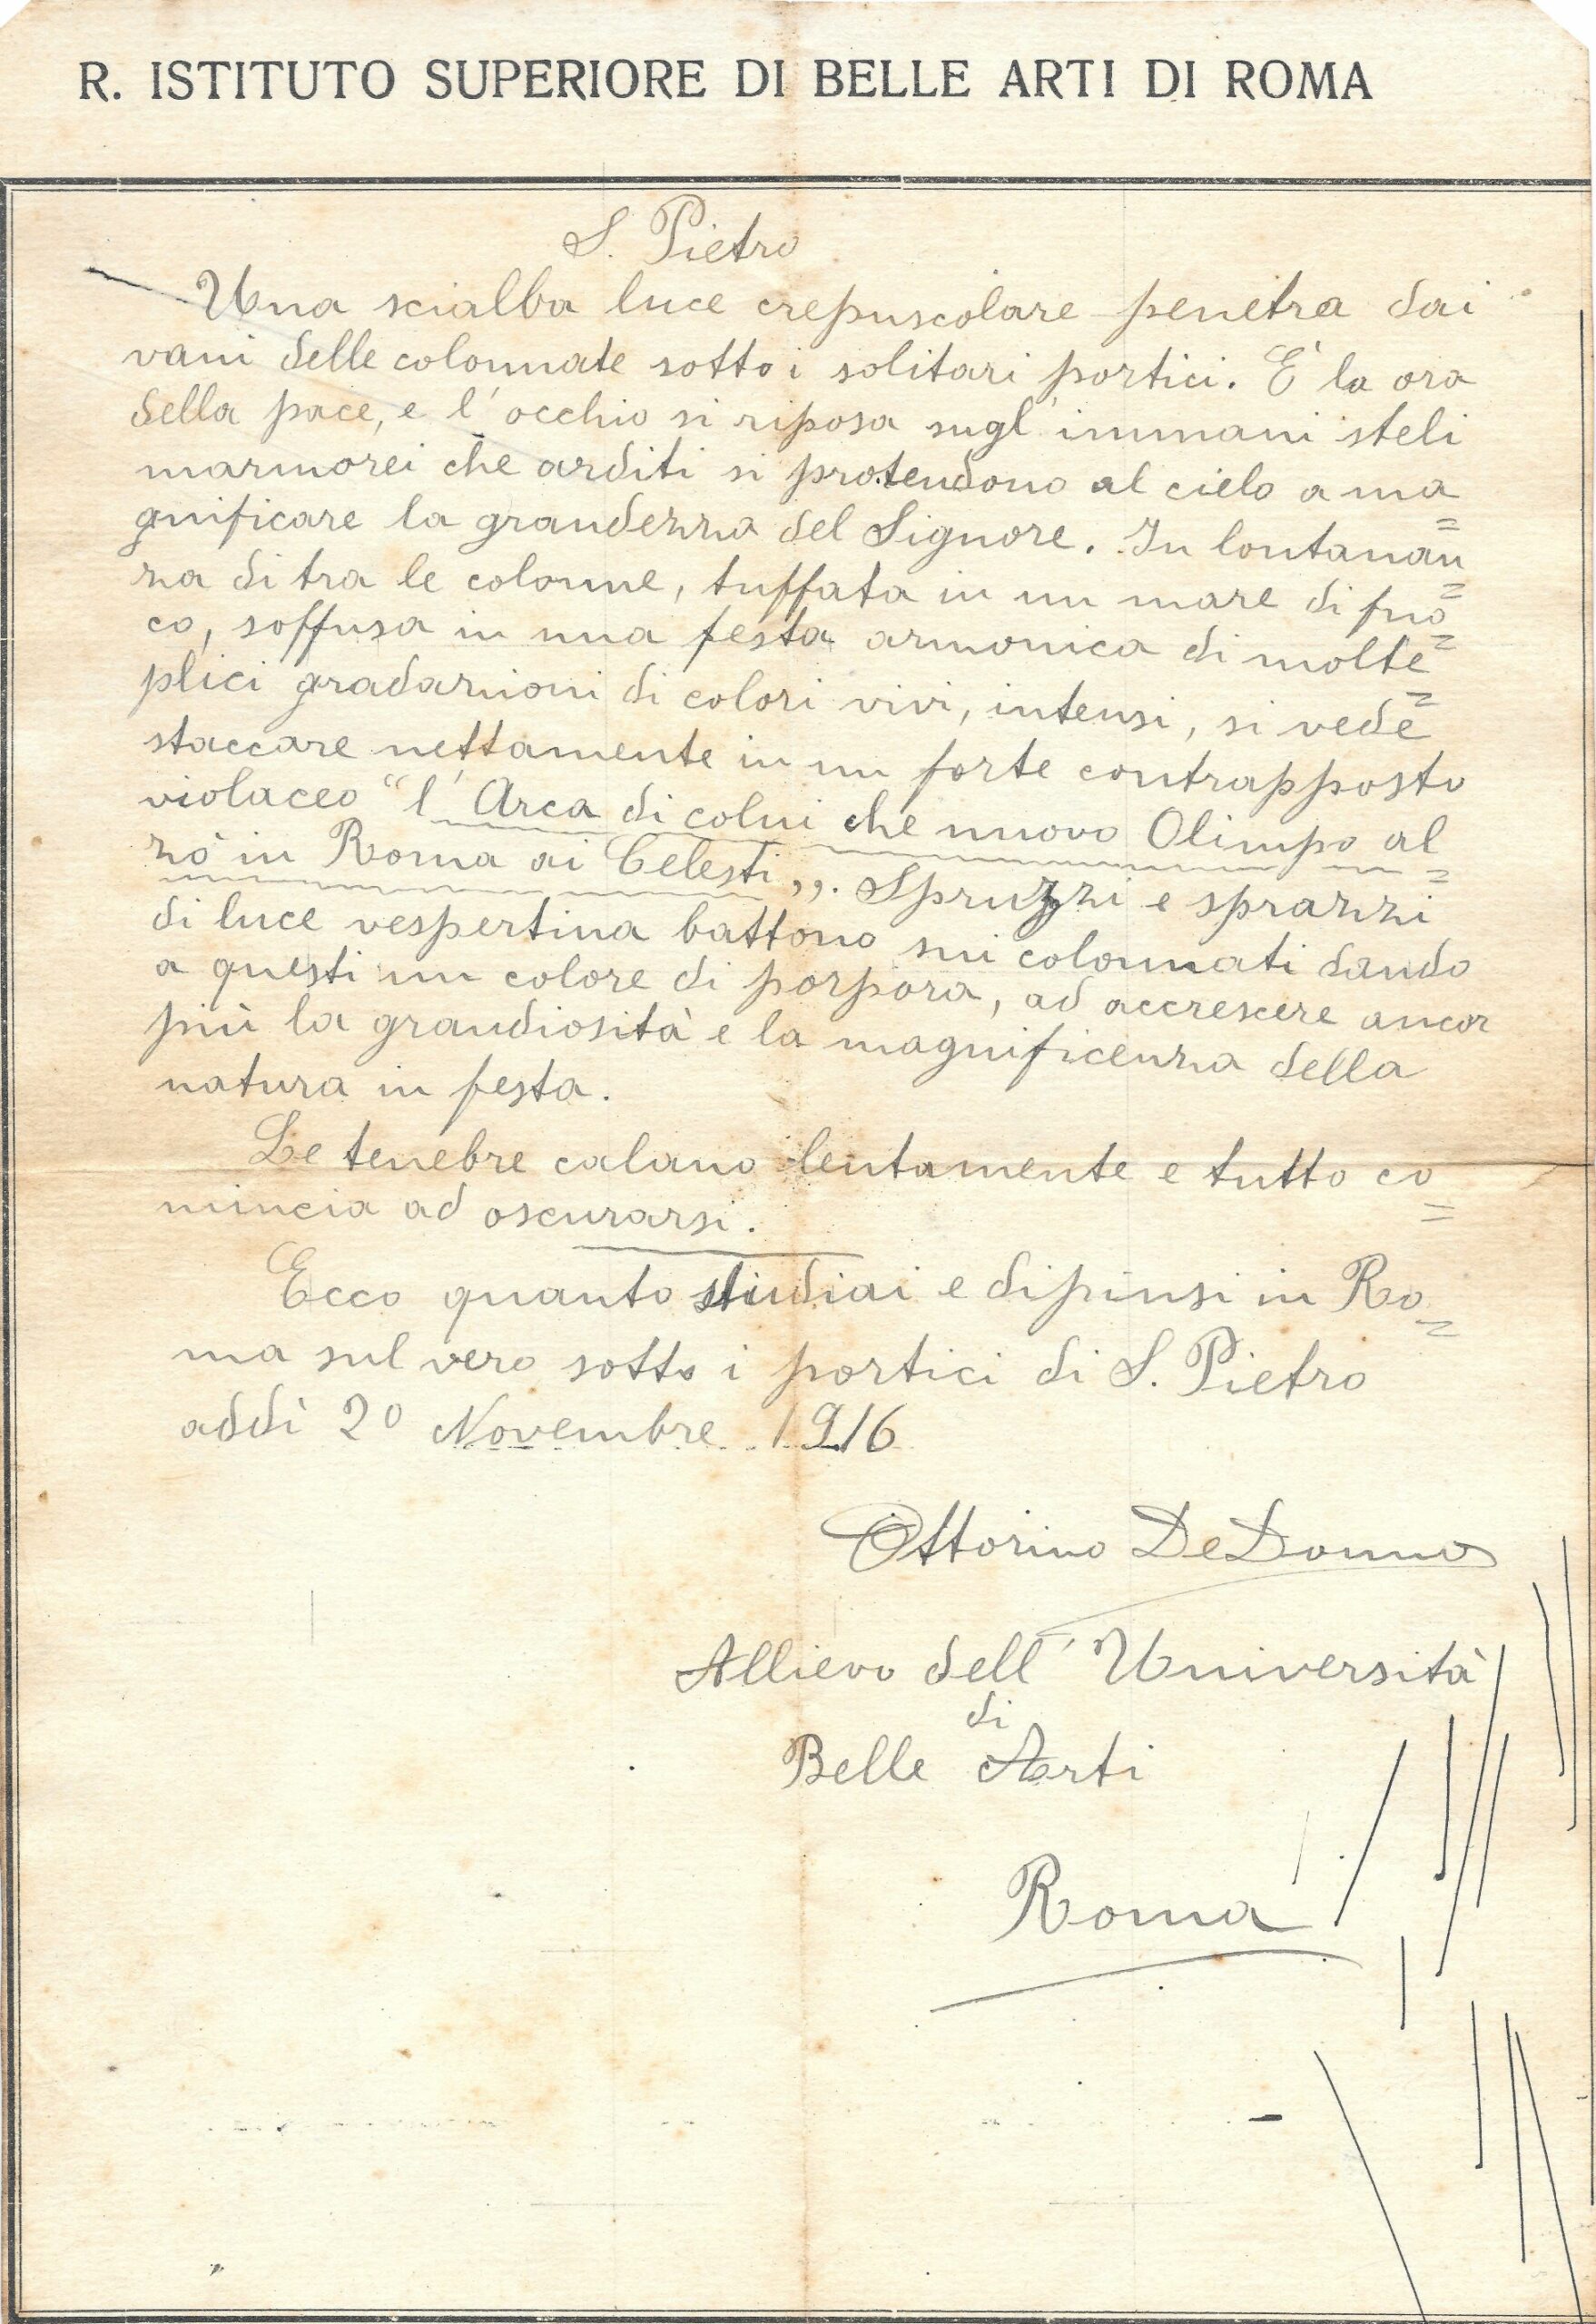 R. ISTITUTO SUPERIORE DI BELLE ARTI DI ROMA
S. Pietro
Una scialba luce crepuscolare penetra dai
vani delle colonnate sotto i solitari portici. È la ora
della pace, e l'occhio si riposa sugl'immani steli
marmorei che arditi si protendono al cielo a ma
gnificare la grandezza del Signore. In lontanan=
za di tra le colonne, tuffata in un mare di fuo=
co, soffusa in una festa armonica di molte=
plici gradazioni di colori vivi, intensi, si vede
staccare nettamente in un forte contrapposto
violaceo "l'Arca di colui che nuovo Olimpo al=
zò in Roma ai Celesti,,. Spruzzi e sprazzi
di luce vespertina battono sui colonnati dando
a questi un colore di porpora, ad accrescere ancor
più la grandiosità e la magnificenza della
natura in festa.
Le tenebre calano lentamente e tutto co=
mincia ad oscurarsi.
Ecco quanto studiai e dipinsi in Ro=
ma sul vero sotto i portici di S. Pietro
addì 20 Novembre 1916
Ottorino De Donno
Allievo dell'Università
di
Belle Arti
Roma